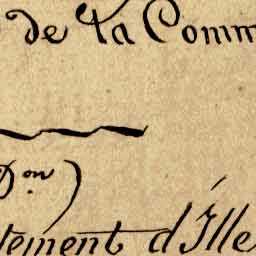 de la Comm
Don)
tement d'Ille